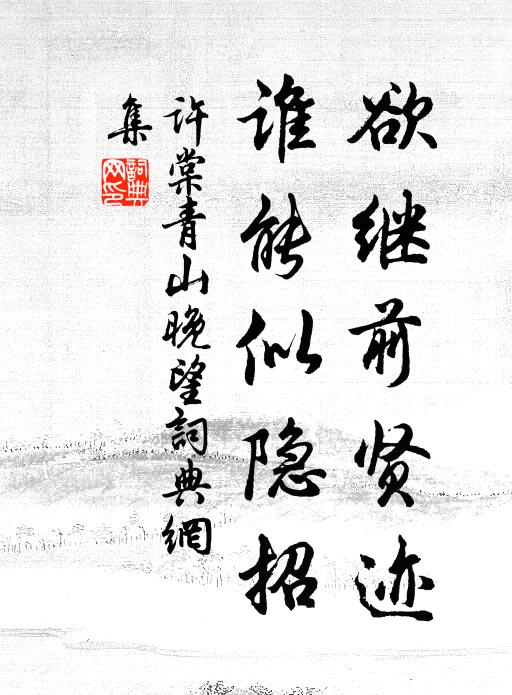 欲继前贤迹
谁能似隐招
许棠青山晚望詞典網
集
詞典
网印